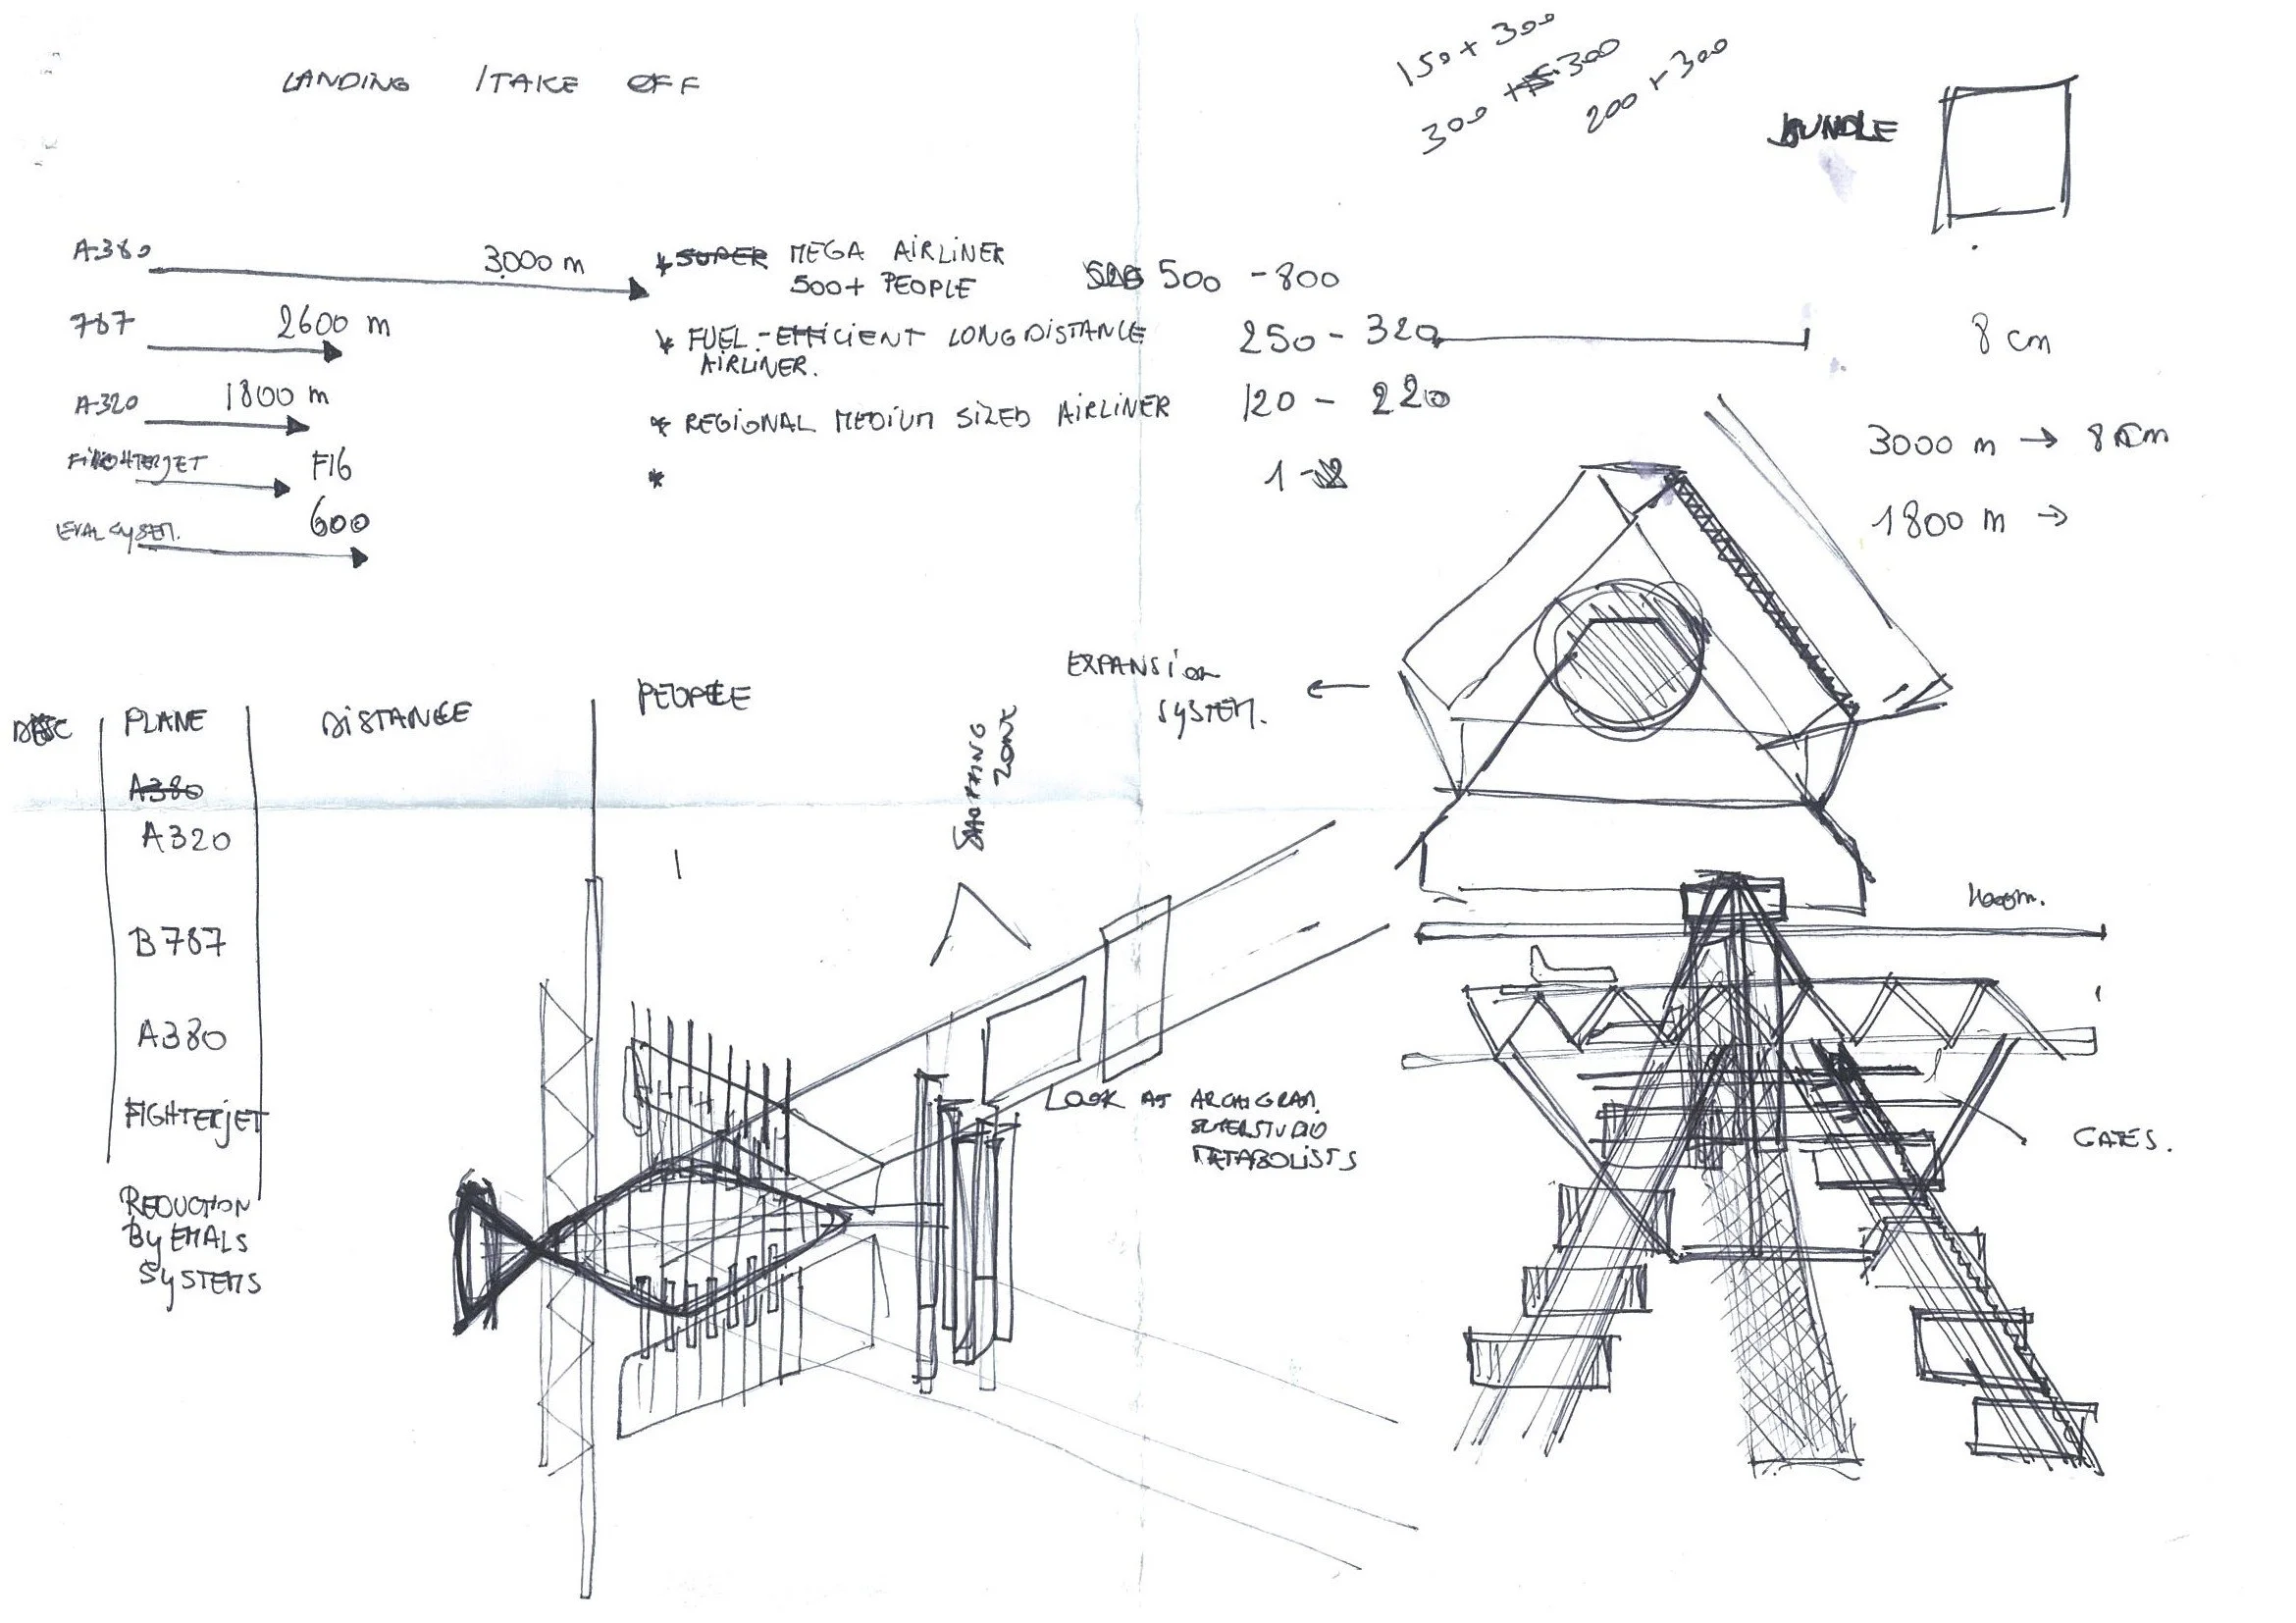 LANDING /TAKE OFF
150 + 300
300 + 300
200 + 300
A380
3000 m
* SUPER MEGA AIRLINER
500+ PEOPLE
500 - 800
787
2600 m
* FUEL-EFFICIENT LONG DISTANCE
AIRLINER.
250 - 320
8 cm
A320
1800 m
* REGIONAL MEDIUM SIZED AIRLINER
120 - 220
3000 m → 8 cm
F16
*
1 - 2
1800 m →
600
EXPANSION
SYSTEM.
←
PLANE
DISTANCE
PEOPLE
A380
A320
B787
A380
FIGHTERJET
REDUCTION
BY EMALS
SYSTEMS
SHOPPING
ZONE
LOOK AT ARCHIGRAM
SUPERSTUDIO
METABOLISTS
GATES.